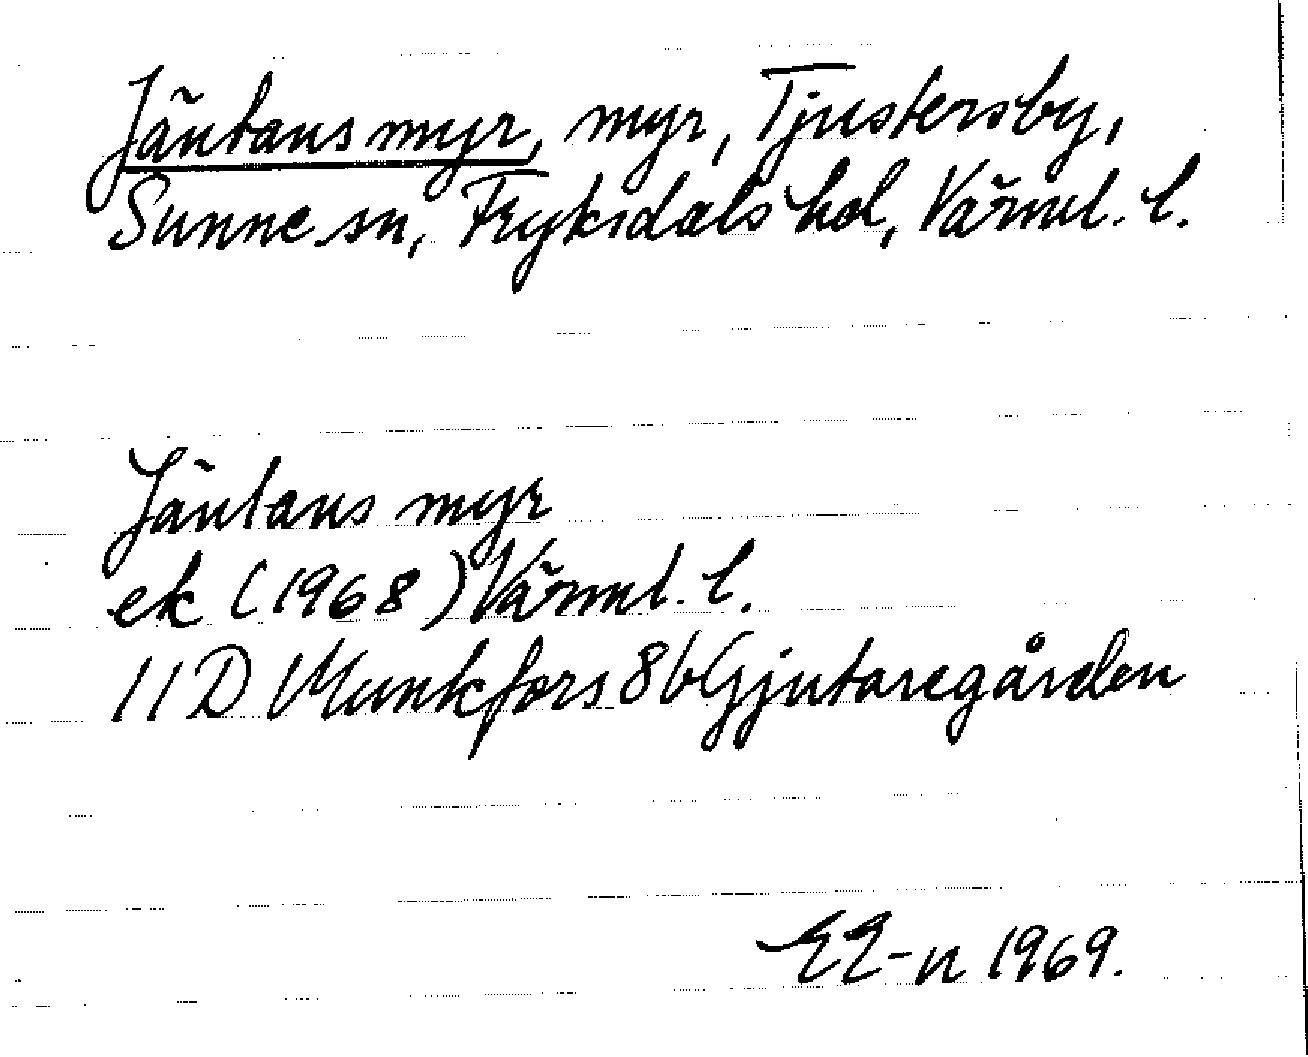 Jäntans myr, myr, Tjustersby,
Sunne sn, Fryksdals hd, Värml. l.
Jäntans myr
ek (1968) Värml. l.
11D Munkfors 8b Gjutaregården
EE-n 1969.